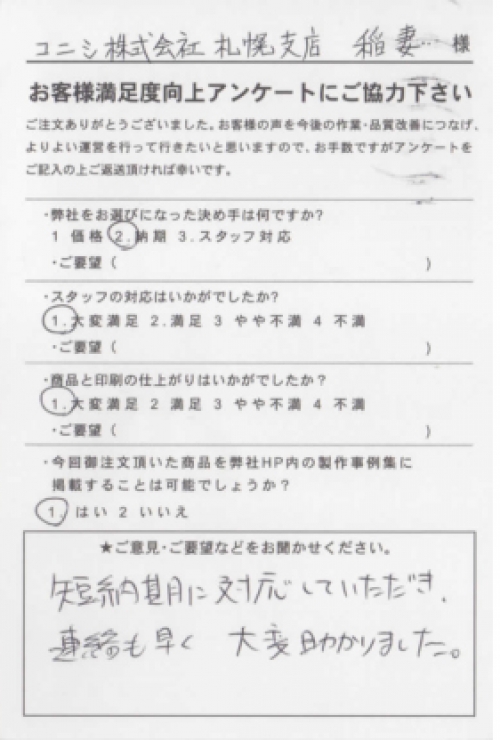 コニシ株式会社 札幌支店 稲妻… 様
お客様満足度向上アンケートにご協力下さい
ご注文ありがとうございました。お客様の声を今後の作業・品質改善につなげ、
よりよい運営を行って行きたいと思いますので、お手数ですがアンケートを
ご記入の上ご返送頂ければ幸いです。
・弊社をお選びになった決め手は何ですか?
1 価格 2.納期 3.スタッフ対応
・ご要望( )
・スタッフの対応はいかがでしたか?
1.大変満足 2.満足 3 やや不満 4 不満
・ご要望( )
・商品と印刷の仕上がりはいかがでしたか?
1.大変満足 2 満足 3 やや不満 4 不満
・ご要望( )
・今回御注文頂いた商品を弊社HP内の製作事例集に
掲載することは可能でしょうか?
1. はい 2 いいえ
★ご意見・ご要望などをお聞かせください。
短納期に対応していただき、
連絡も早く 大変助かりました。